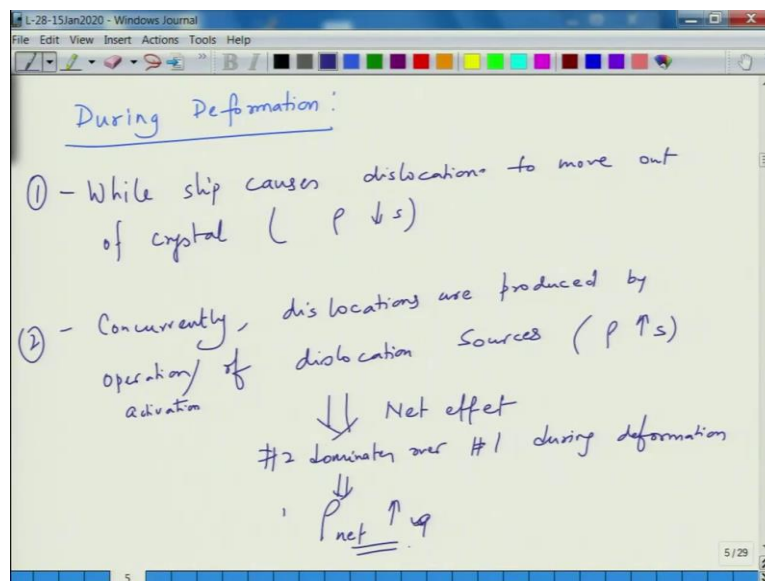 L-28-15Jan2020 - Windows Journal
File Edit View Insert Actions Tools Help
B I
During Deformation:
① - While slip causes dislocations to move out
of crystal ( ρ ↓s)
② - Concurrently, dislocations are produced by
operation/ of dislocation sources ( ρ ↑s)
activation
⇓ Net effet
#2 dominates over #1 during deformation
⇓
ρnet ↑
5/29
5